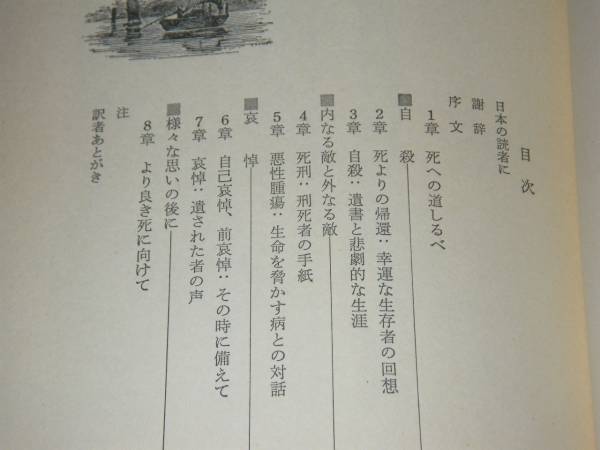 目次
日本の読者に
謝辞
序文
1章 死への道しるべ
■自殺
2章 死よりの帰還：幸運な生存者の回想
3章 自殺：遺書と悲劇的な生涯
■内なる敵と外なる敵
4章 死刑：刑死者の手紙
5章 悪性腫瘍：生命を脅かす病との対話
■哀悼
6章 自己哀悼、前哀悼：その時に備えて
7章 哀悼：遺された者の声
■様々な思いの後に
8章 より良き死に向けて
注
訳者あとがき